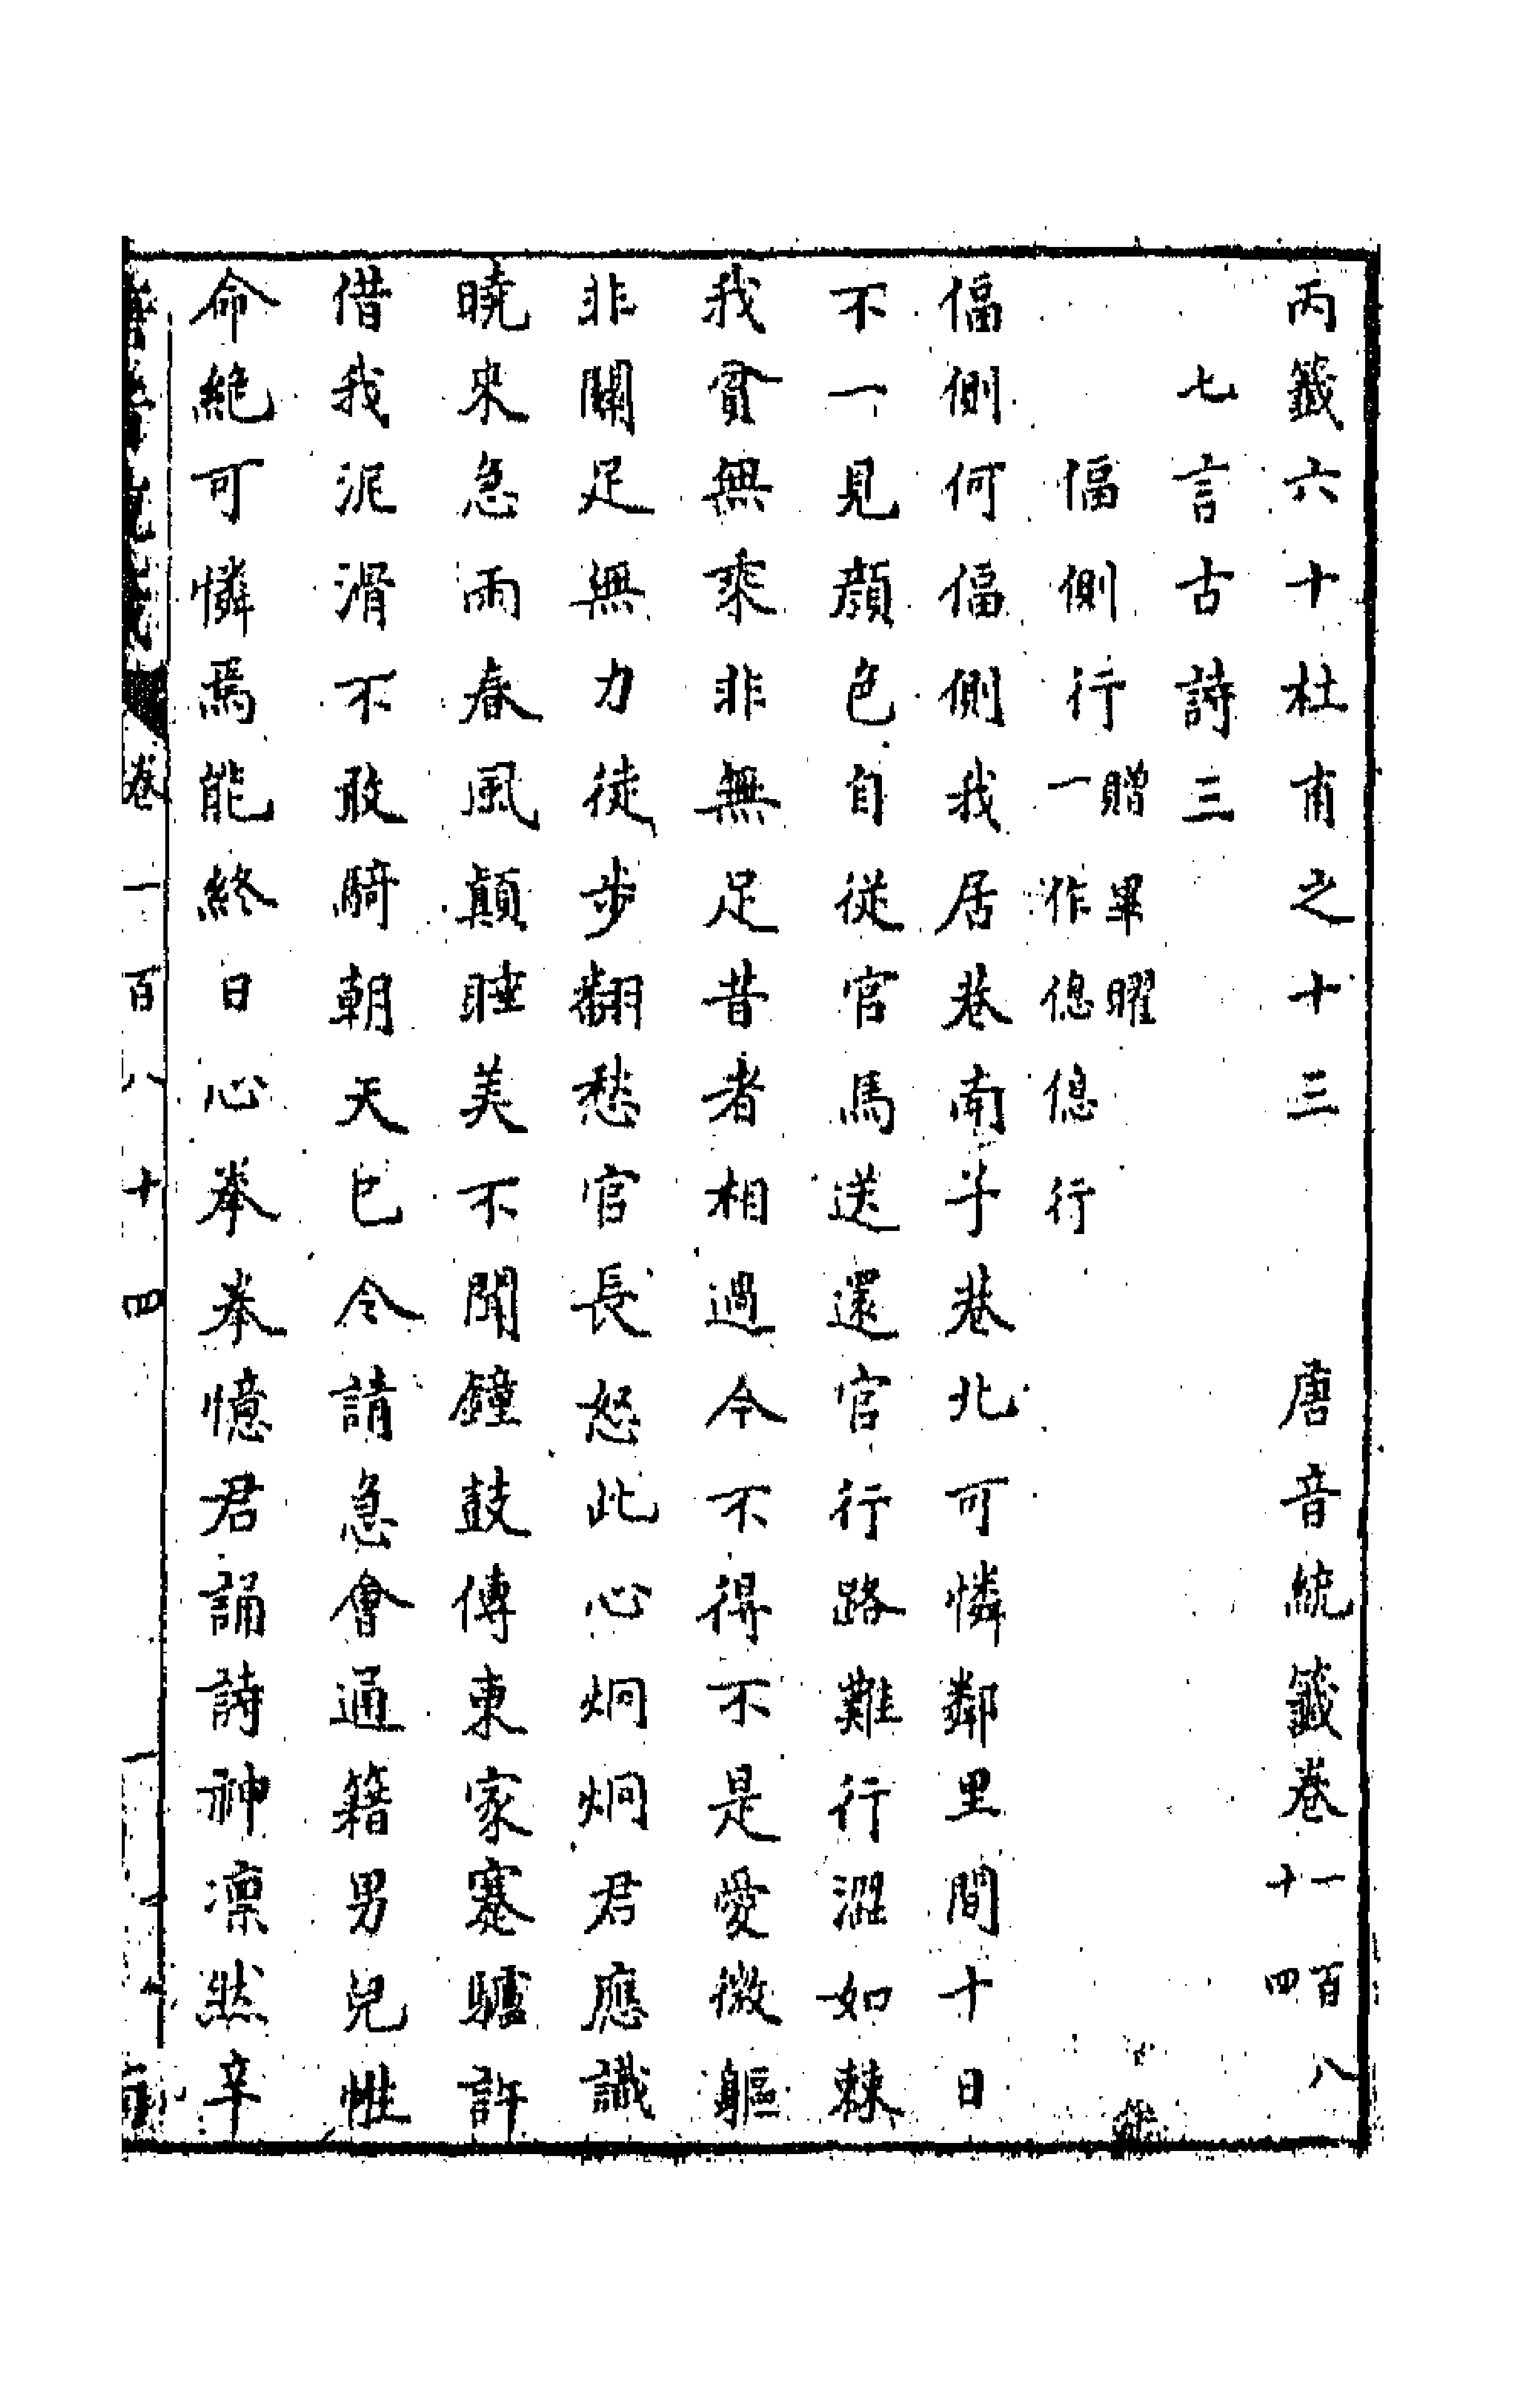 丙籤六十杜甫之十三　唐音統籤卷一百八十四
七言古詩三
偪側行贈畢曜一作偬偬行
偪側何偪側我居巷南子巷北可憐鄰里間十日
不一見顔色自從官馬送還官行路難行澀如棘
我貧無乘非無足昔者相過今不得不是愛微軀
非關足無力徒步翻愁官長怒此心炯炯君應識
曉來急雨春風顛睡美不聞鐘鼓傳東家蹇驢許
借我泥滑不敢騎朝天已令請急會通籍男兒性
命絶可憐焉能終日心拳拳憶君誦詩神凜然辛
卷一百八十四